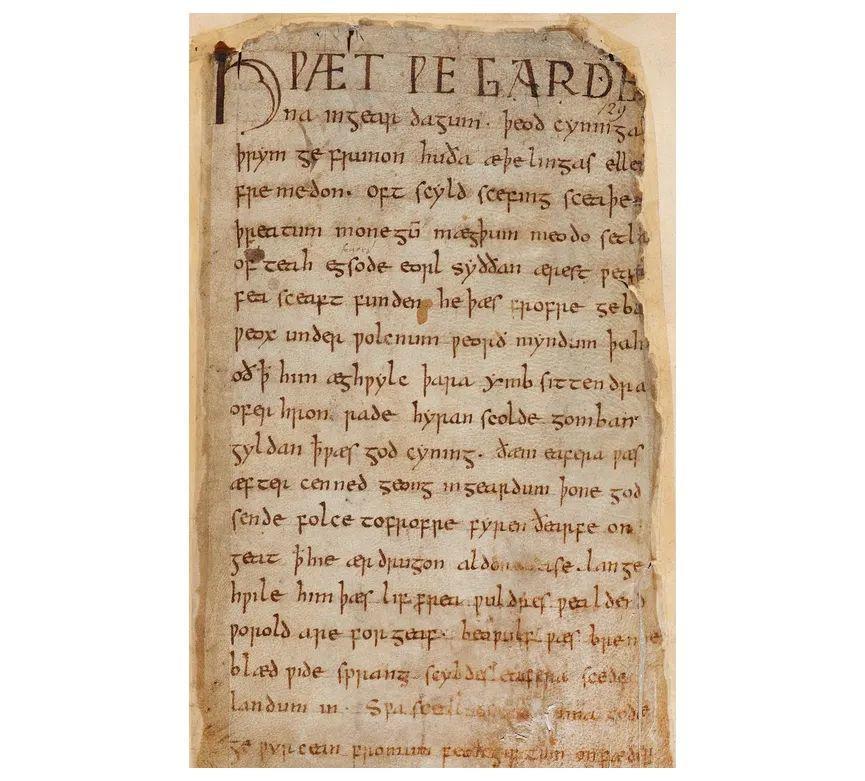 HǷÆT ǷE GARDE
129
na ingear dagum. þeod cyninga
þrym ge frunon huða æþelingas elle
fremedon. oft scyld scefing sceaþe
þreatum monegū mægþum meodo setla
of teah egsode eorl syððan ærest
fea sceaft funden he þæs frofre geba
ƿeox under ƿolcnum ƿeorð myndum þah
oð ꝥ him æghƿylc þara ymb sittendra
ofer hron rade hyran scolde gomban
gyldan ꝥ ƿæs god cyning. ðæm eafera ƿæs
æfter cenned geong ingeardum þone god
sende folce tofrofre fyren ðearfe on
geat ꝥ hie ær drugon lange
hƿile him þæs lif frea ƿuldres ƿealdend
ƿorold are for geaf. beoƿulf ƿæs breme
blæd ƿide sprang scyldes eafera scede
landum in. Sƿa gode
ge ƿyrcean fromum feohgiftum